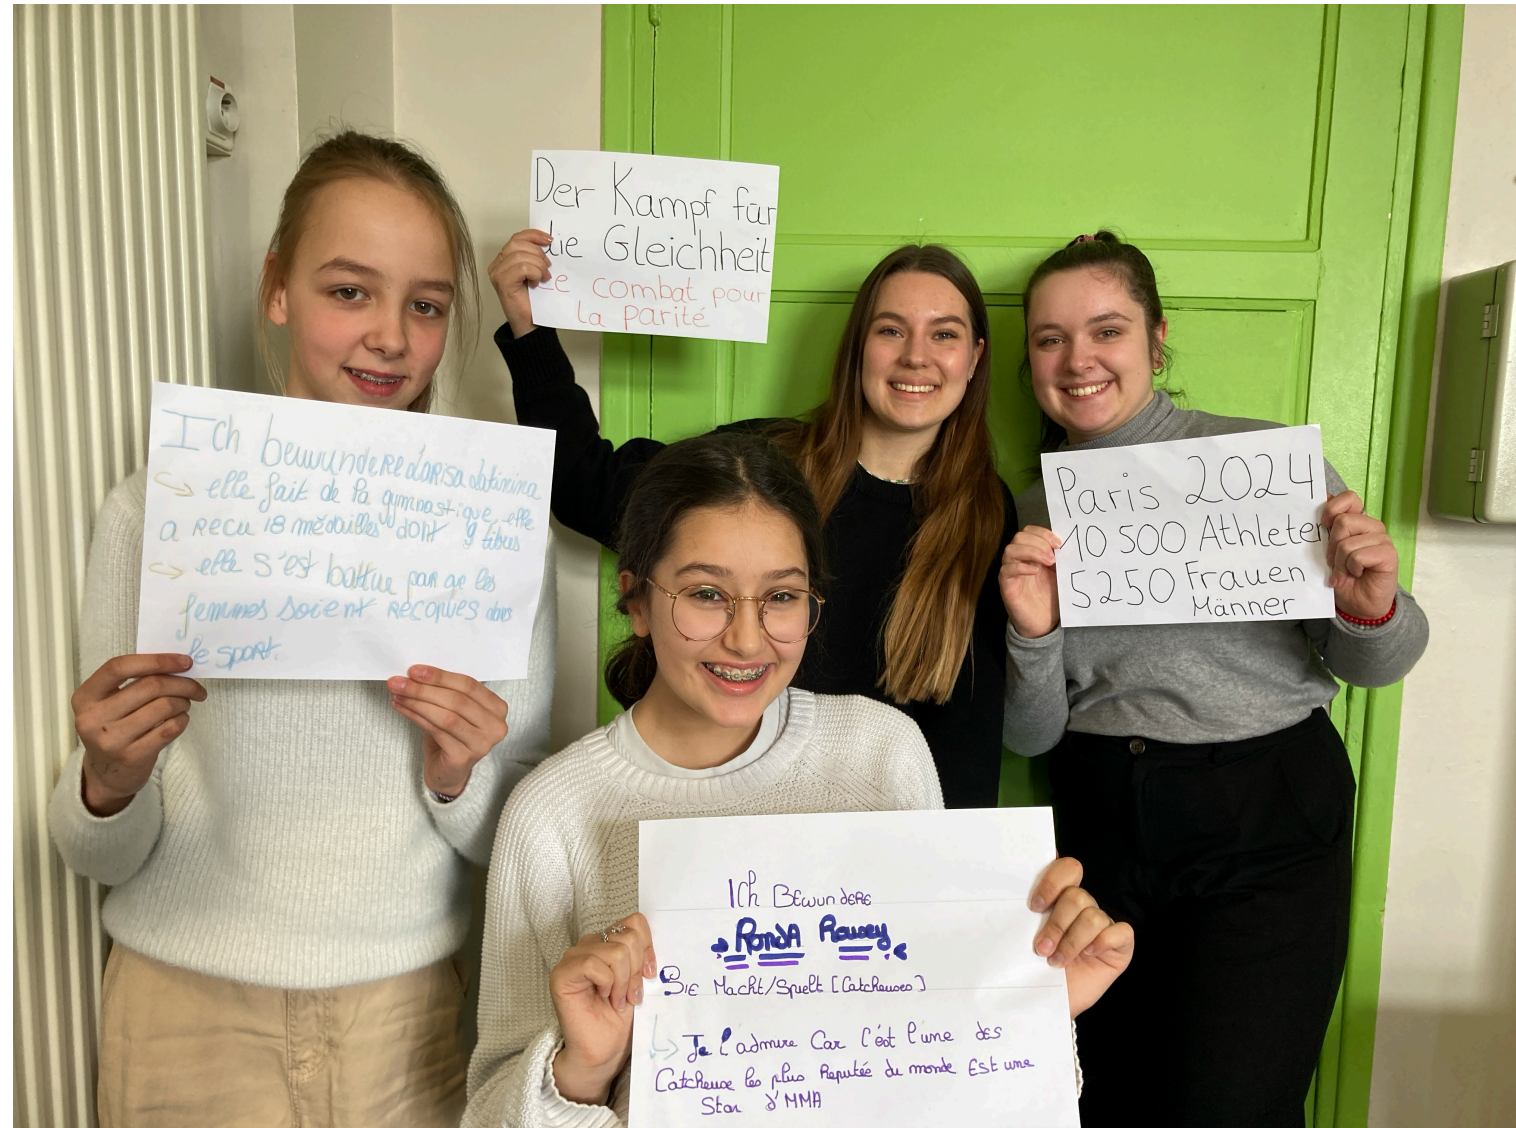 Der Kampf für
die Gleichheit
Le combat pour
la parité
Ich bewundere Larisa Latinina
elle fait de la gymnastique elle
a recu 18 médailles dont 9 titres
elle s'est battue par qe les
femmes soient reconues dans
le sport.
Paris 2024
10 500 Athleten
5250 Frauen
Männer
Ich Bewundere
Ronda Rousey
Sie Macht/Spielt [Catcheuses]
Je l'admire Car C'est l'une des
Catcheuse les plus Reputée du monde Est une
Star d'MMA